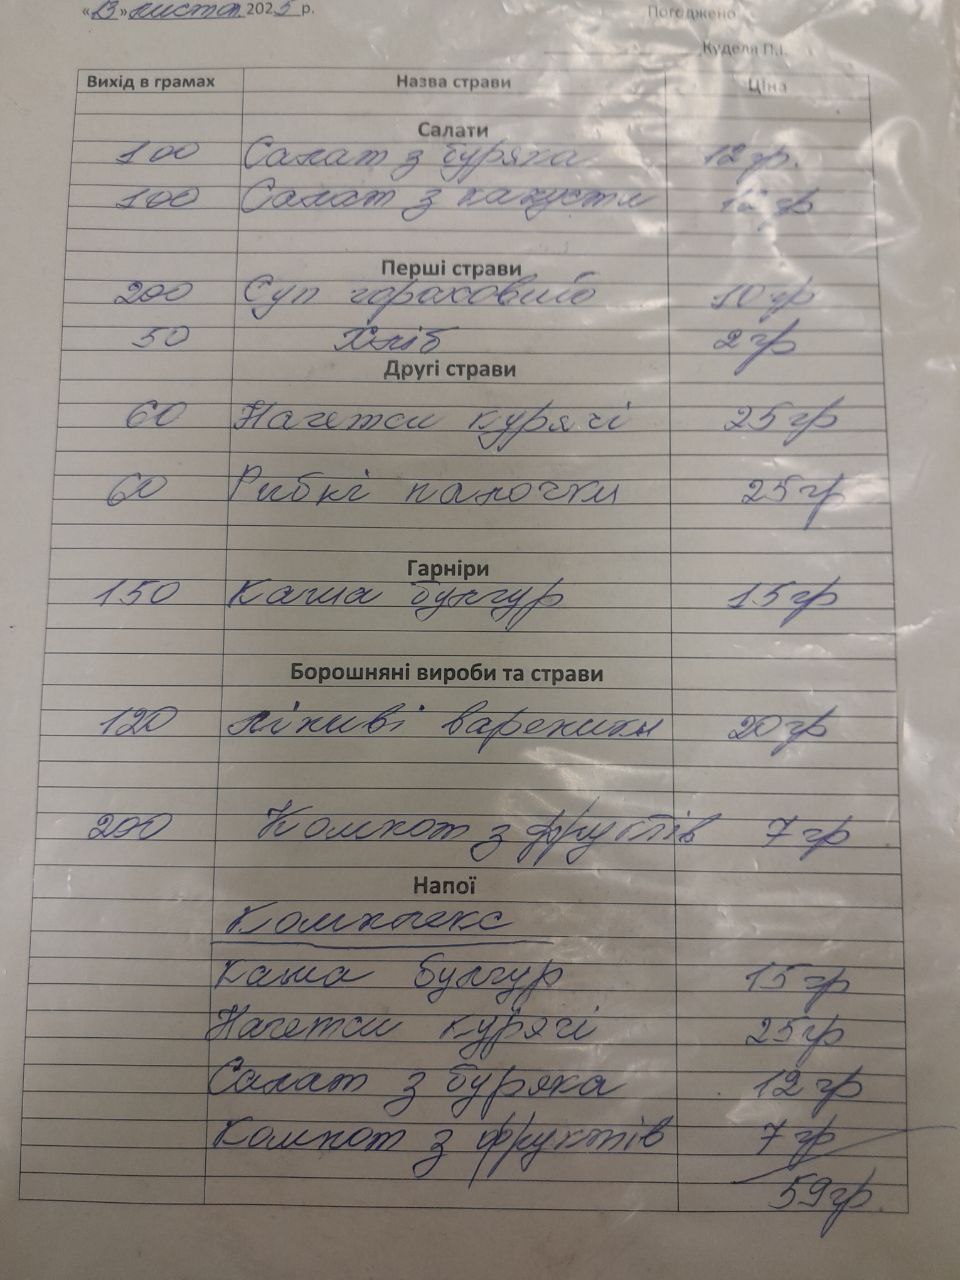 «13» листоп. 2025 р.
Погоджено
Кудела П.І.
Вихід в грамах Назва страви Ціна
Салати
100 Салат з буряка 12 гр.
100 Салат з капусти 12 гр
Перші страви
200 Суп гороховий 10 гр
50 Хліб 2 гр
Другі страви
60 Нагетси курячі 25 гр
60 Рибні палочки 25 гр
Гарніри
150 Каша булгур 15 гр
Борошняні вироби та страви
120 Ліниві вареники 20 гр
200 Компот з фруктів 7 гр
Напої
Комплекс
Каша булгур 15 гр
Нагетси курячі 25 гр
Салат з буряка 12 гр
Компот з фруктів 7 гр
59 гр.